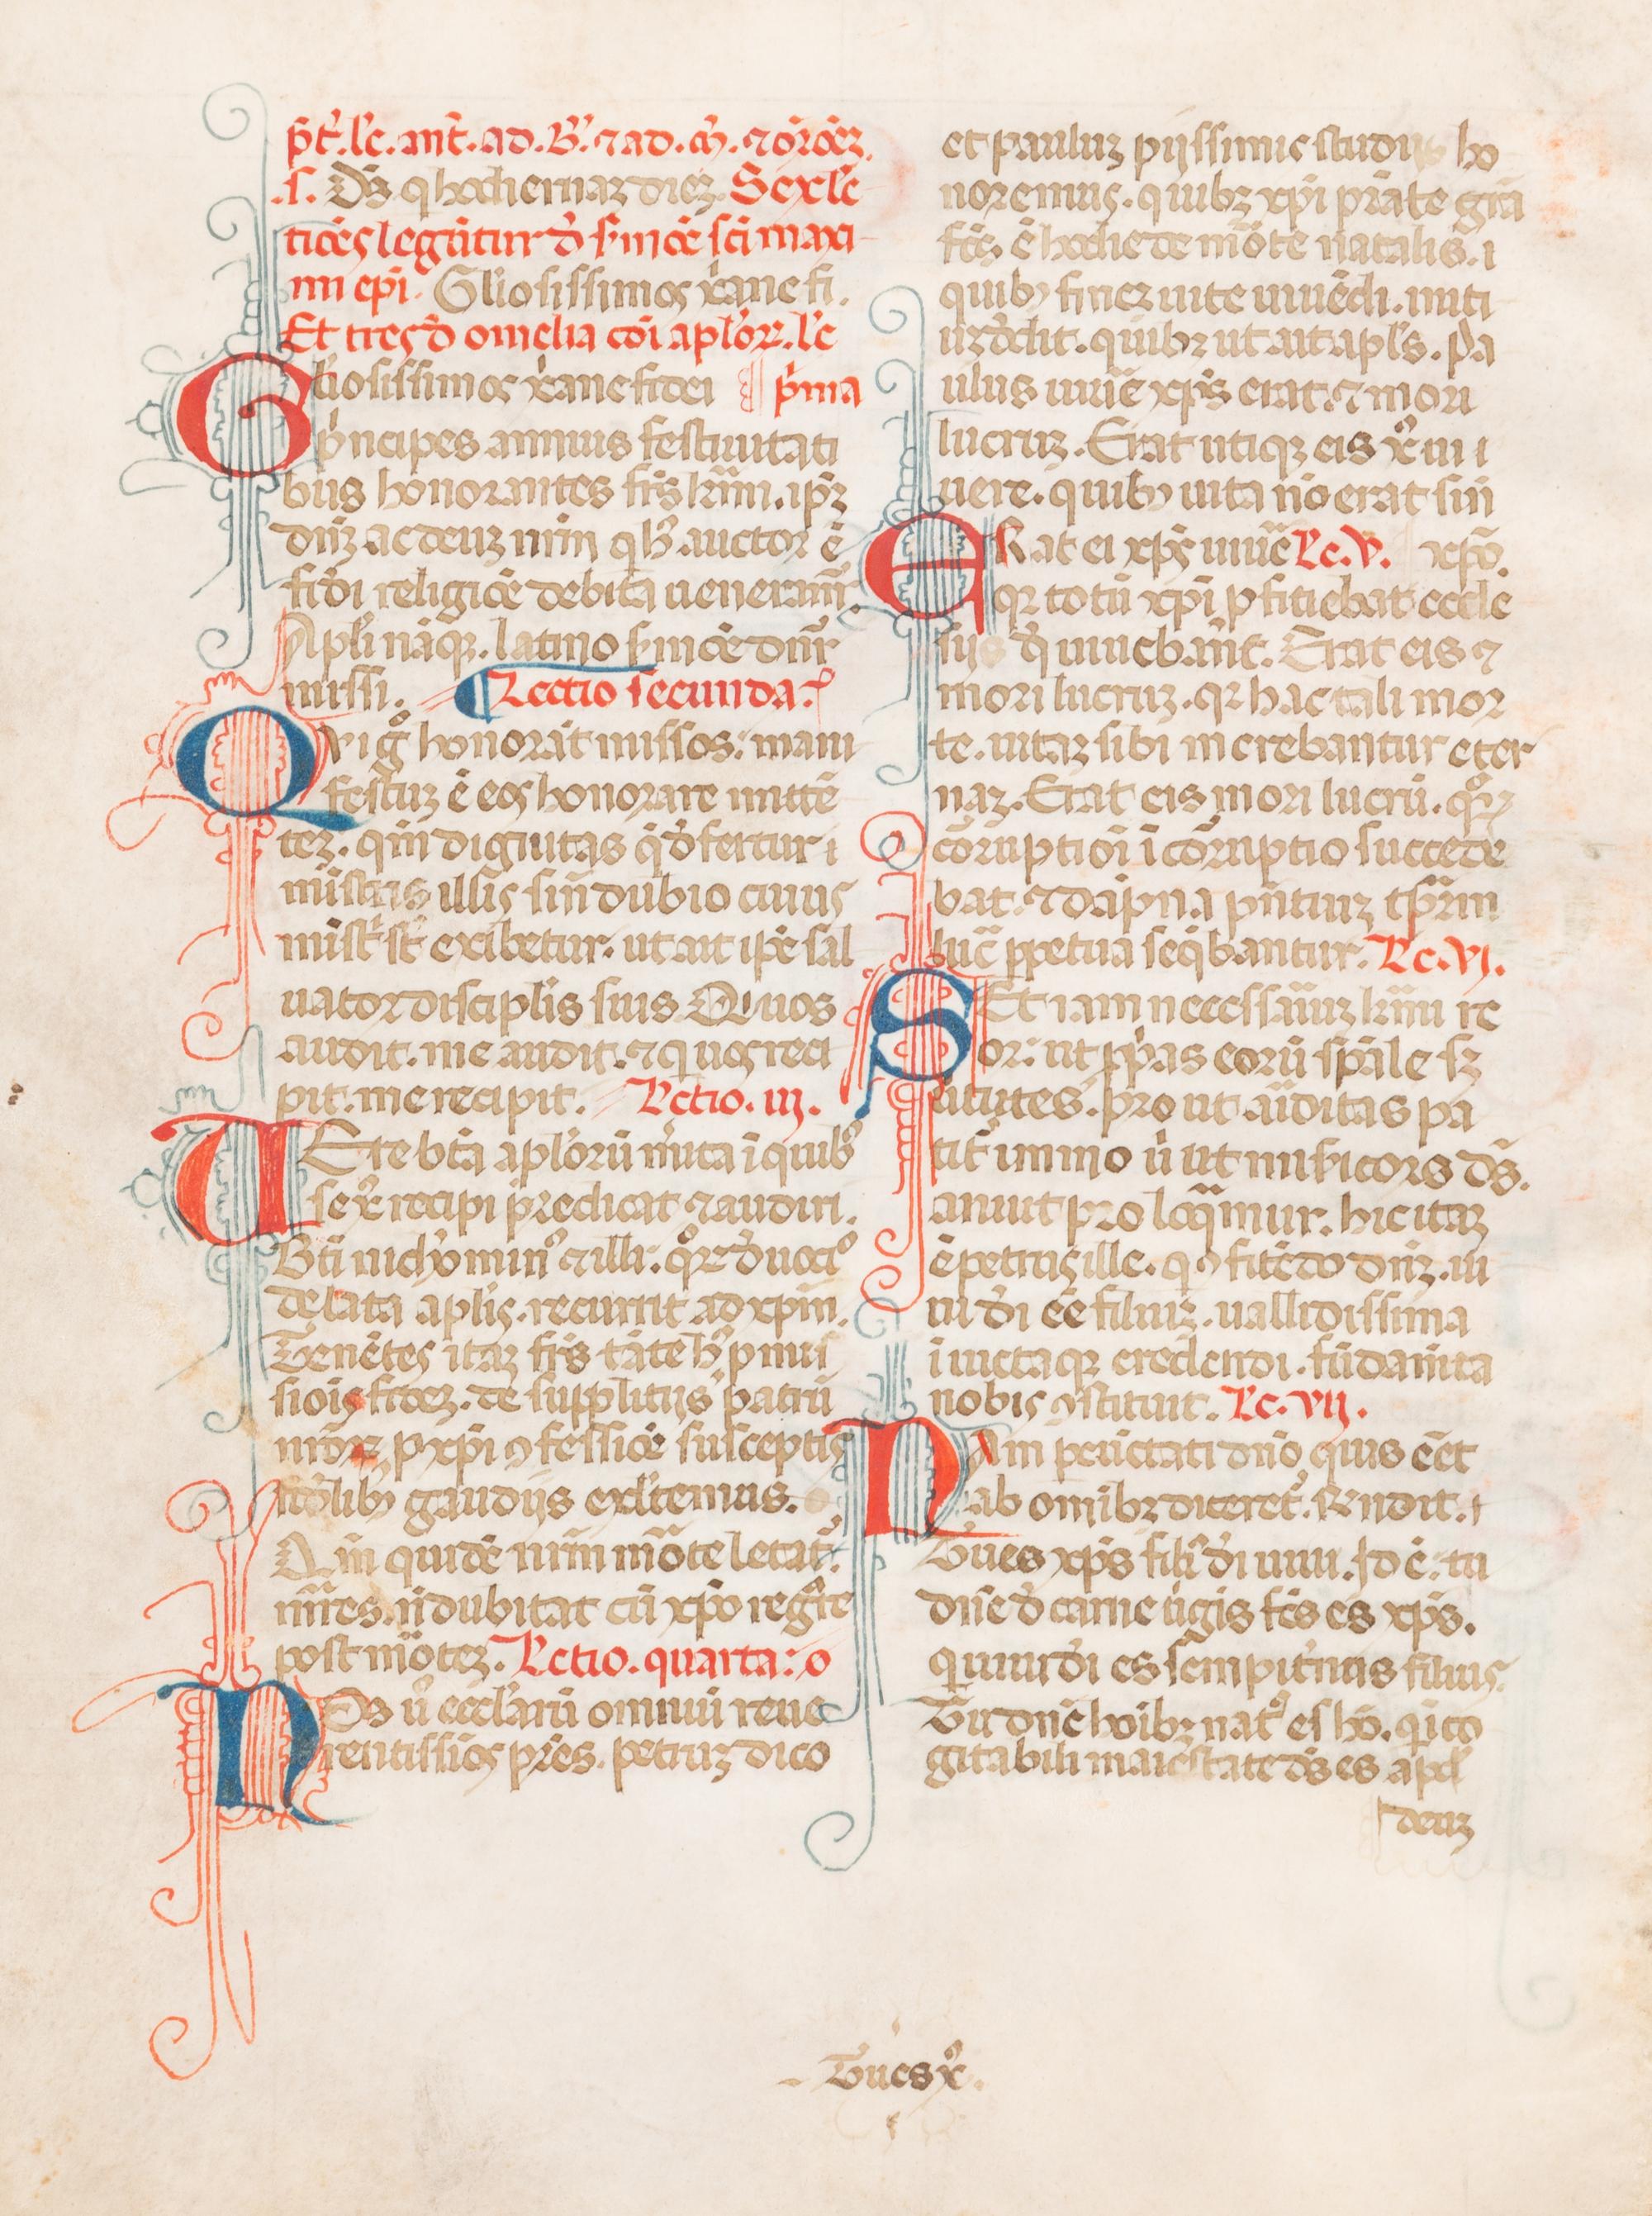 p̄t̄. lc̄. ant̄. ad. B'. ⁊ ad. m̄. ⁊ ōrōez.
.s. Ds̄ q hodiernaz diez. Sex le
ctiōes legūtur d̓ s̓mōe sc̄i maxi
mi epi. Gliosissimos xp̄ane fi.
Et tres d̓ omelia cōi apl'oꝝ. lc̄
p̓ma
Gliosissimos xp̄ane fidei
p̓ncipes annuus festiuitati
bus honorantes fr̄s kr̄mi. ip̄ꝫ
dn̄ꝫ ac deuꝫ nr̄m q h̓ auctor ē
fid̓i religiōe debita ueneram̄r.
Apl'i nāqꝫ. latino s̓mōe dn̄r
missi. Lectio secunda.
Qvi g̊ honorāt missos: mani
festuꝫ ē eos honorare mittē
teꝫ. qm̄ dignitas q̓ d̓fertur i
mīstris illis sin̄ dubio cuius
mīst̓ st̄ exibetur. ut ait ip̄e sal
uator discipl'is suis. Qui uos
audit. me audit. ⁊ qui uos reci
pit. me recipit. Lectio. iij.
VEre bt̄a apl'orū m̓ita ī quibꝰ
se xp̄c recipi predicat ⁊ audiri.
Bt̄i nich'omin̓ ⁊ illi. qm̊ d̓uocō
delata apl'is. recurrit ad xp̄m.
Tenētes itaꝫ fr̄s tāte h̓ pmis
siois fidez. de supplitijs patrū
nr̄oꝝ p xp̄i ꝯfessiōe susceptis
sol'ibꝰ gaudijs exl'temus.
Qm̄ quidē nr̄m mōrte letat̓.
mr̄es. n̄ dubitat cū xp̄o reg̓re
post mōtez. Lectio. quarta:
Nos ū eccl'arū omniū reue
rentissios pr̄es. petruꝫ dico
et pauluꝫ pijssimis studijs ho
noremus. quibꝫ xp̄i p̄rāte gr̄a
fc̄s ē hodie de mōte natalis. i
quibꝰ finez uite uiuēdi. initi
uꝫ d̓dit. quibꝫ ut ait apl's. pa
ulus uiue xp̄s erat. ⁊ mori
lucruꝫ. Erat utiqꝫ eis xp̄c ui
uere. quibꝰ uita nō erat sin̄
xp̄o.
ERat ei xp̄s uiuē Lc. v.
qꝫ totū xp̄i pfitiebat eccle
sijs q̓ uiuebānt. Erat eis ⁊
mori lucruꝫ. qꝫ hac tali mor
te. uitaꝫ sibi merebantur eter
naꝫ. Erat eis mori lucrū. qm̊
cōrruptiōi īcōrruptio succede
bat. ⁊ dāpna pn̄tiuꝫ tp̄ꝝm
luc̄ ppetua seq̓bantur. Lc. vj.
SEt iam necessariuꝫ kr̄mi re
or: ut pp̄as eorū sp̄ale sꝫ
uirtutes. pro ut aiditas pa
tit̓ immo ū ut mis̓icors ds̄.
annuit pro loq̓mur. hic itaꝫ
ē petrus ille. qꝯfitēdo dn̄ꝫ. ui
ui d̓i eē filiuꝫ. uallidissima
iniectaqꝫ credendi. fūdam̄ta
nobis ꝯstituit. Lc. vij.
NAm pecūctati dn̄o quis eēt
ab omibꝫ diceret̓. rn̄dit. i
Tu es xp̄s fili̓ d̓i uiui. Id ē. tu
dn̄e d̓ carne ūgis fc̄s es xp̄s.
q uiui d̓i es sempit̓nus filius.
Tu dn̄e hoībꝫ nat̓ es hō. q ico
gitabili maiestate ds̄ es apd'
deuꝫ
Tu es xp̄.